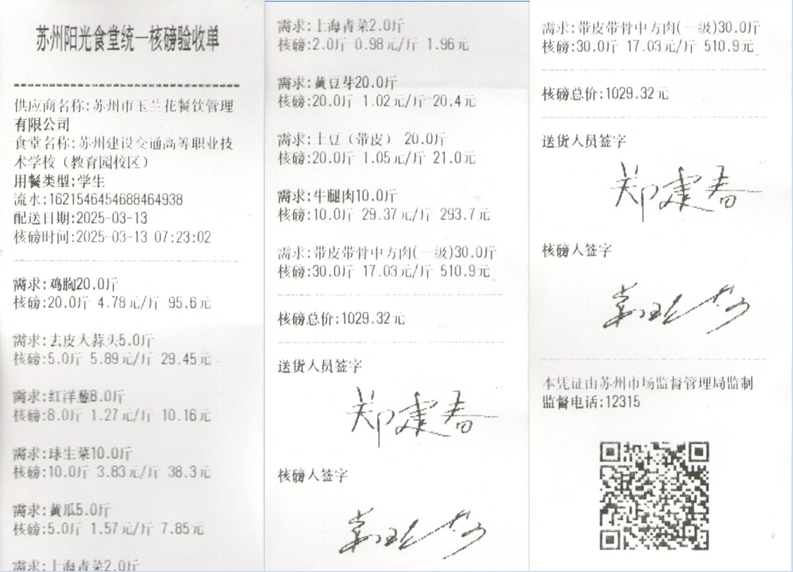 苏州阳光食堂统一核磅验收单
供应商名称:苏州市玉兰花餐饮管理
有限公司
食堂名称:苏州建设交通高等职业技
术学校(教育园校区)
用餐类型:学生
流水:1621546454688464938
配送日期:2025-03-13
核磅时间:2025-03-13 07:23:02
需求:鸡胸20.0斤
核磅:20.0斤 4.78元/斤 95.6元
需求:去皮大蒜头5.0斤
核磅:5.0斤 5.89元/斤 29.45元
需求:红洋葱8.0斤
核磅:8.0斤 1.27元/斤 10.16元
需求:球生菜10.0斤
核磅:10.0斤 3.83元/斤 38.3元
需求:黄瓜5.0斤
核磅:5.0斤 1.57元/斤 7.85元
需求:上海青菜2.0斤
需求:上海青菜2.0斤
核磅:2.0斤 0.98元/斤 1.96元
需求:黄豆芽20.0斤
核磅:20.0斤 1.02元/斤 20.4元
需求:土豆(带皮) 20.0斤
核磅:20.0斤 1.05元/斤 21.0元
需求:牛腿肉10.0斤
核磅:10.0斤 29.37元/斤 293.7元
需求:带皮带骨中方肉(一级)30.0斤
核磅:30.0斤 17.03元/斤 510.9元
核磅总价:1029.32元
送货人员签字
郑建春
核磅人签字
需求:带皮带骨中方肉(一级)30.0斤
核磅:30.0斤 17.03元/斤 510.9元
核磅总价:1029.32元
送货人员签字
郑建春
核磅人签字
本凭证由苏州市场监督管理局监制
监督电话:12315